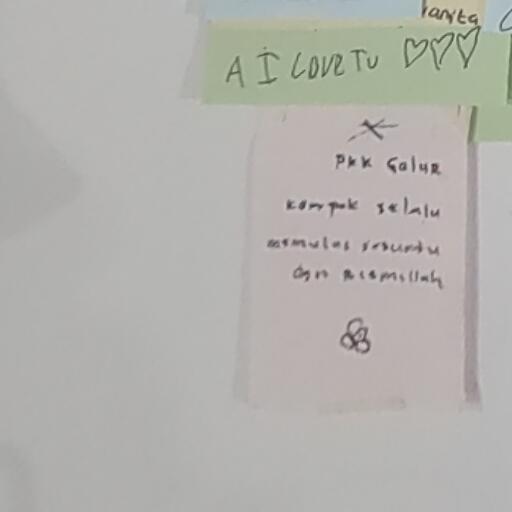 Tanita
A I LOVE TU
PKK Galur
Kompak selalu
memulai sesuatu
dgn Bismillah